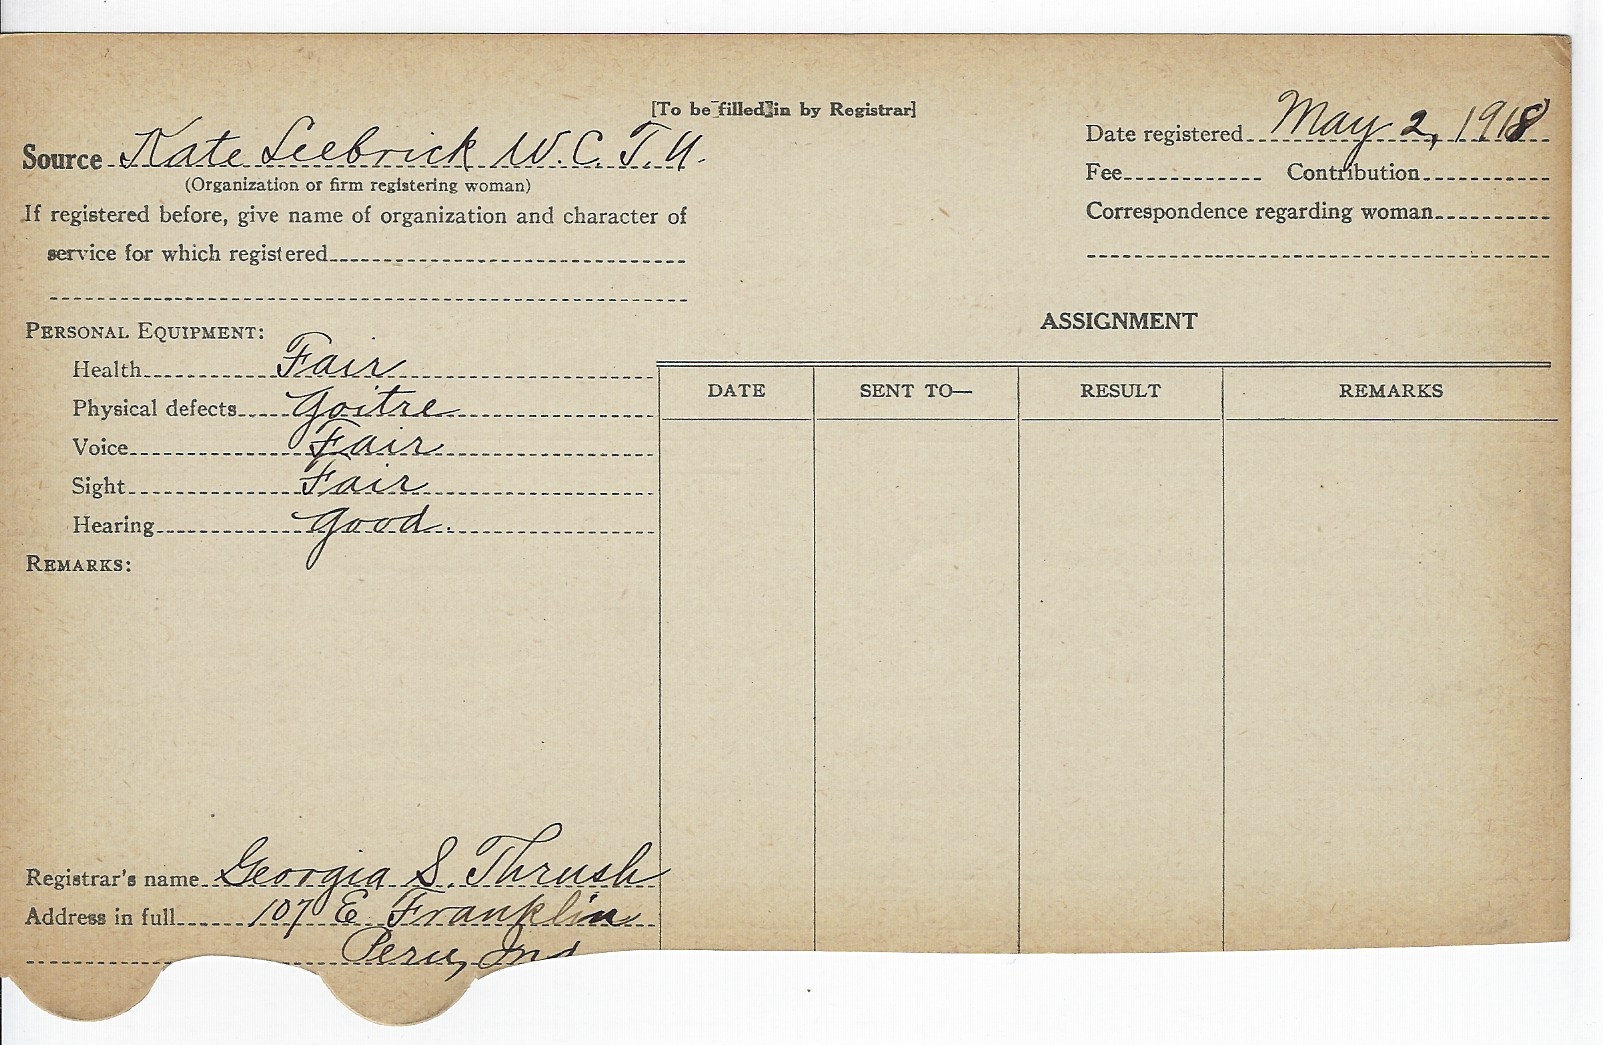 [To be filled in by Registrar]
Source Kate Seebrick W. C. T. U.
(Organization or firm registering woman)
If registered before, give name of organization and character of
service for which registered
Date registered May 2, 1918
Fee Contribution
Correspondence regarding woman
PERSONAL EQUIPMENT:
Health Fair
Physical defects Goitre
Voice Fair
Sight Fair
Hearing Good.
REMARKS:
ASSIGNMENT
DATE SENT TO— RESULT REMARKS
Registrar's name Georgia S. Thrush
Address in full 107 E Franklin
Peru, Ind